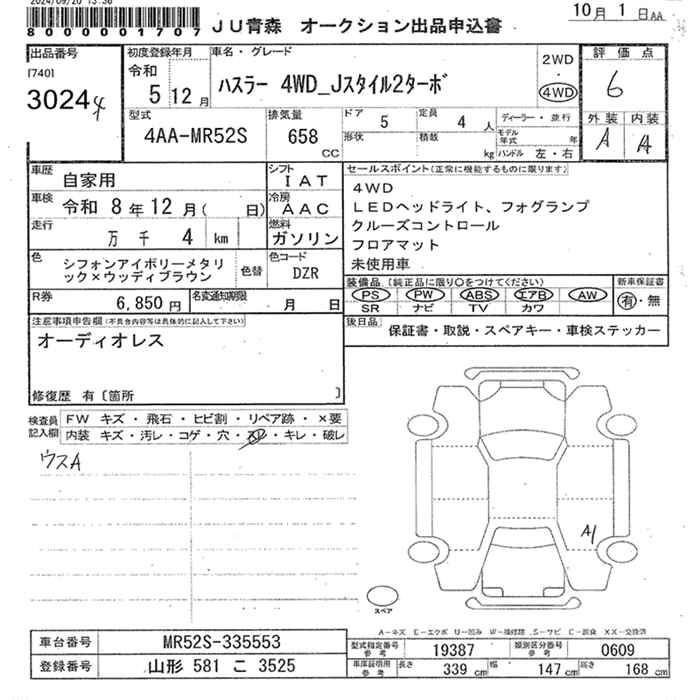 2024/09/20 13:36
8000001707
JU青森 オークション出品申込書
10月1日AA
出品番号
[740]
30244
初度登録年月
令和
5 12月
車名・グレード
ハスラー 4WD_Jスタイル2ターボ
2WD
4WD
評価点
6
外装 内装
A A
型式
4AA-MR52S
排気量
658
CC
ドア 5
定員 4 人
形状
積載
kg
ディーラー・並行
モデル年式 年
ハンドル 左・右
車歴
自家用
シフト
IAT
車検
令和 8年12月( 日)
冷房
AAC
走行
万 千 4 km
燃料
ガソリン
色
シフォンアイボリーメタリ
ック×ウッディブラウン
色替
色コード
DZR
R券
6,850円
名変通知期限
月 日
セールスポイント(正常に機能するものに限ります)
4WD
LEDヘッドライト、フォグランプ
クルーズコントロール
フロアマット
未使用車
装備品(純正品に限り○をつけてください)
PS PW ABS エアB AW
SR ナビ TV カワ
新車保証書
有・無
後日品
保証書・取説・スペアキー・車検ステッカー
注意事項申告欄(不具合内容等は具体的に記入して下さい)
オーディオレス
修復歴 有〔箇所 〕
検査員
記入欄
FW キズ・飛石・ヒビ割・リペア跡・×要
内装 キズ・汚レ・コゲ・穴・スレ・キレ・破レ
ウスA
A1
スペア
A-キズ E-エクボ U-凹み W-補修跡 S-サビ C-腐食 XX-交換済
車台番号
MR52S-335553
登録番号
山形 581 こ 3525
型式指定番号
参考
19387
類別区分番号
参考
0609
車庫証明用
参考
長さ 339 cm
幅 147 cm
高さ 168 cm